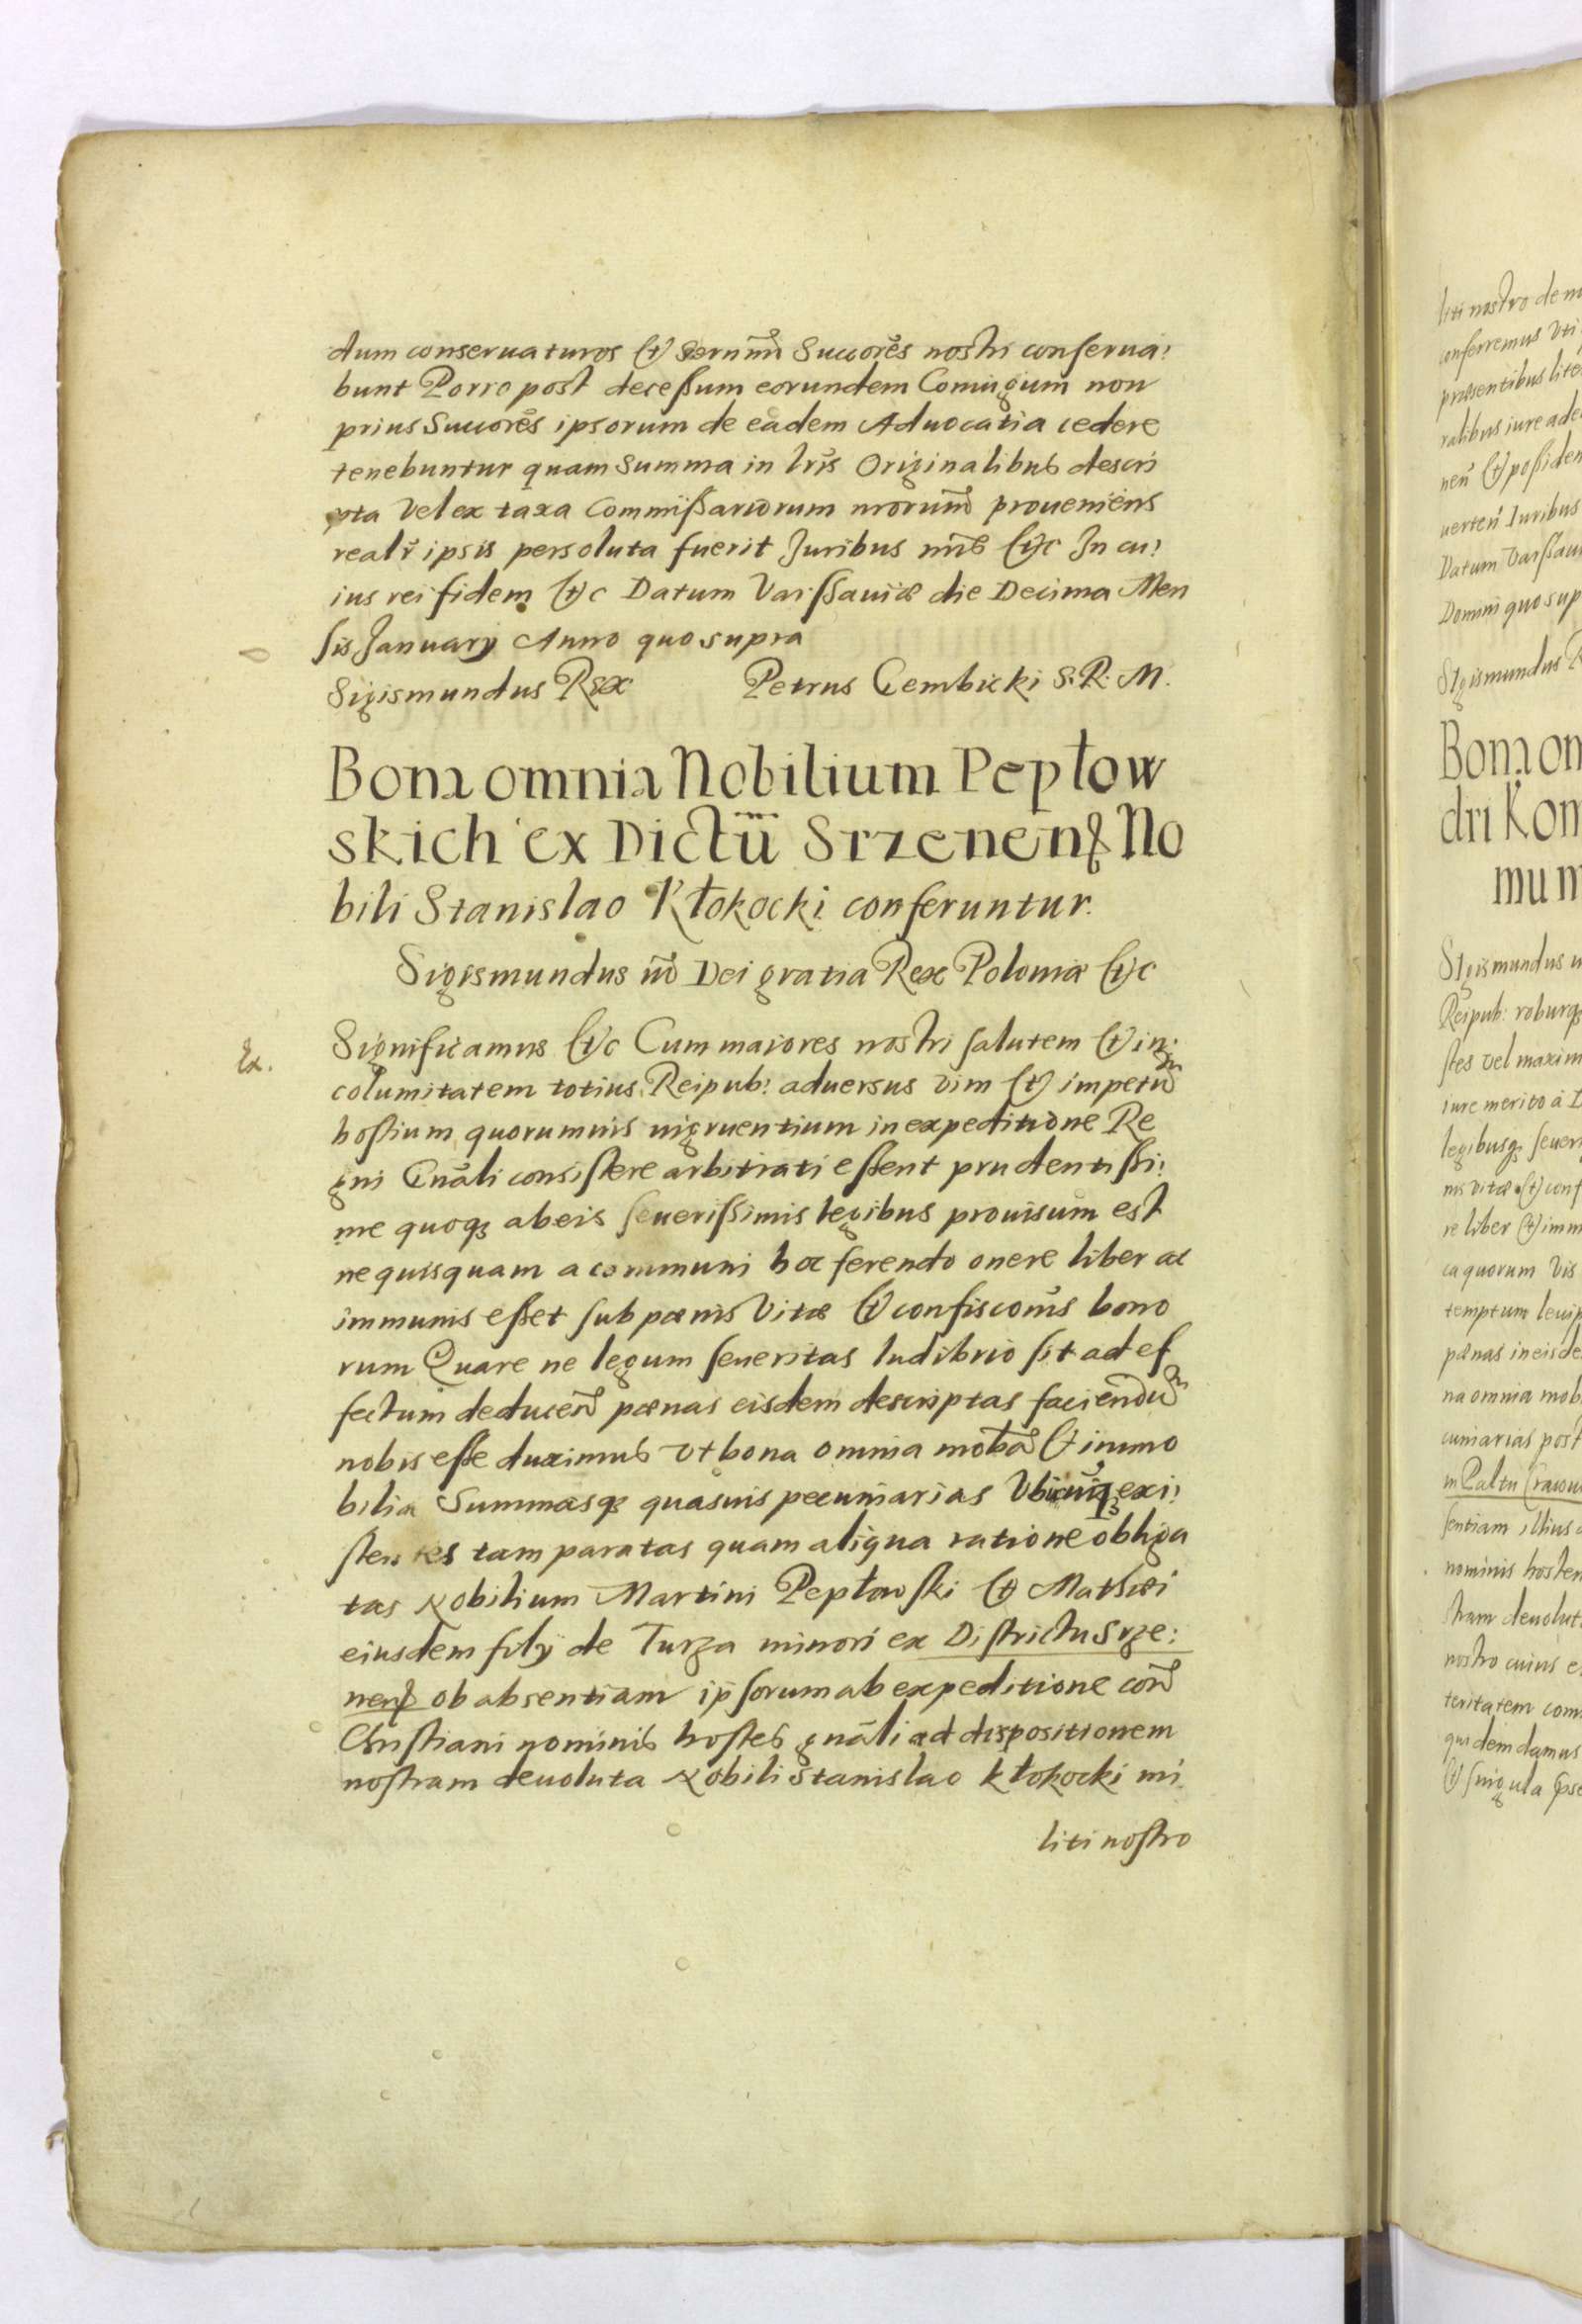 dum conseruaturos et Serenmi Succores nostri conserua:
bunt Porro post decessum eorundem Coniugum non
prius Succores ipsorum de eadem Aduocatia cedere
tenebuntur quam Summa in lris Originalibus descri
pta Vel ex taxa Commissariorum nrorum proueniens
realr ipsis persoluta fuerit Juribus nris etc In cu:
ius rei fidem etc Datum Varssauiæ die Decima Men
sis January Anno quo supra
Sigismundus Rex Petrus Gembicki S. R. M.
Bona omnia Nobilium Pepłow
skich ex Dictũ Srzenens No
bili Stanislao Kłokocki conferuntur.
Sigismundus iii Dei gratia Rex Poloniæ etc
Ex.
Significamus etc Cum maiores nostri salutem et in:
columitatem totius Reipub: aduersus vim et impetũ
hostium quorumuis ingruentium in expeditione Re
gni Gnãli consistere arbitrati essent prudentissi:
me quoqꝫ ab eis seuerissimis legibus prouisum est
ne quisquam a communi hoc ferendo onere liber ac
immunis esset sub pœnis Vitæ et confisconis bono
rum Quare ne legum seueritas ludibrio sit ad ef
fectum deducen pœnas eisdem descriptas faciendũ
nobis esse duximus vt bona omnia mobã et immo
bilia Summasqꝫ quasuis pecuniarias Vbicũqꝫ exi:
stentes tam paratas quam aliqua ratione obliga
tas Nobilium Martini Pepłowski et Mathæi
eiusdem filÿ de Turza minori ex Districtu Srze:
nens ob absentiam ipsorum ab expeditione con
Christiani nominis hostes gnãli ad dispositionem
nostram deuoluta Nobili Stanislao Kłokocki mi
liti nostro
liti nostro de
conferremus vti
præsentibus
ralibus iure
nen et possiden
Juribus
Datum Varssau
Domini quo sup
Sigismundus R
Bona om
dri Kom
mum
Sigismundus
Reipub: roburqꝫ
stes vel maxim
iure merito a
legibusqꝫ seueri
nis vitæ et conf
re liber et imm
ca quorum vis
temptum
pænas in eisde
na omnia mob
cuniarias post
in Paltu Cracou
sentiam illius
nominis hosten
stram deuolut
nostro cuius
teritatem com
quidem damus
et singula